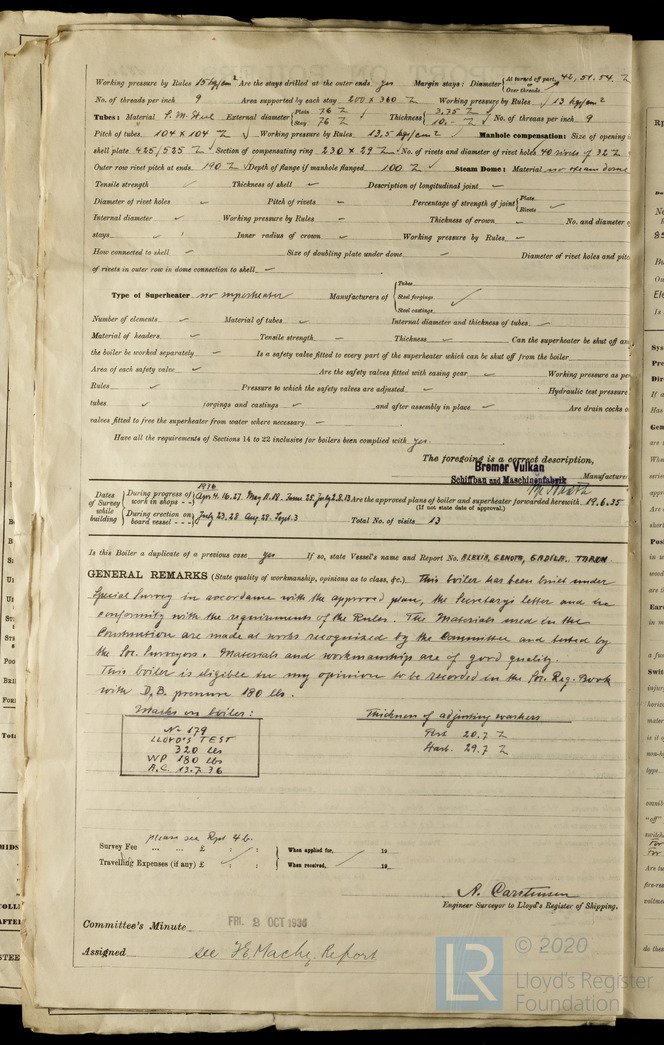 Working pressure by Rules 15 kg/cm² Are the stays drilled at the outer ends yes Margin stays: Diameter { At turned off part, or Over threads 42, 51, 54. Z
No. of threads per inch 9 Area supported by each stay 200 x 360 Z Working pressure by Rules 13 kg/cm²
Tubes: Material S. M. Steel External diameter { Plain 76 Z Stay 76 Z Thickness { 3.75 Z 10.- Z No. of threads per inch 9
Pitch of tubes 104 x 104 Z Working pressure by Rules 13,5 kg/cm² Manhole compensation: Size of opening i
shell plate 425/525 Z Section of compensating ring 230 x 29 Z No. of rivets and diameter of rivet holes 40 rivets of 32 Z
Outer row rivet pitch at ends 190 Z Depth of flange if manhole flanged 100 Z Steam Dome: Material no steam dome
Tensile strength Thickness of shell Description of longitudinal joint
Diameter of rivet holes Pitch of rivets Percentage of strength of joint { Plate Rivets
Internal diameter Working pressure by Rules Thickness of crown No. and diameter o
stays Inner radius of crown Working pressure by Rules
How connected to shell Size of doubling plate under dome Diameter of rivet holes and pitc
of rivets in outer row in dome connection to shell
Type of Superheater no superheater Manufacturers of { Tubes Steel forgings Steel castings
Number of elements Material of tubes Internal diameter and thickness of tubes
Material of headers Tensile strength Thickness Can the superheater be shut off an
the boiler be worked separately Is a safety valve fitted to every part of the superheater which can be shut off from the boiler
Area of each safety valve Are the safety valves fitted with easing gear Working pressure as pe
Rules Pressure to which the safety valves are adjusted Hydraulic test pressure
tubes forgings and castings and after assembly in place Are drain cocks o
valves fitted to free the superheater from water where necessary
Have all the requirements of Sections 14 to 22 inclusive for boilers been complied with yes.
The foregoing is a correct description,
Bremer Vulkan
Schiffbau und Maschinenfabrik Manufacturer
Dates of Survey while building { During progress of work in shops - - 1936 Apr. 4. 16. 27. May 11. 18. June 25. July 2. 8. 13 Are the approved plans of boiler and superheater forwarded herewith 19.6.35
(If not state date of approval.)
During erection on board vessel - - - July 23. 28. Aug. 28. Sept. 3 Total No. of visits 13
Is this Boiler a duplicate of a previous case yes If so, state Vessel's name and Report No. ALEXIA, GENOTA, GADILA, TARON
GENERAL REMARKS (State quality of workmanship, opinions as to class, &c.) This boiler has been built under
Special Survey in accordance with the approved plan, the Secretary's letter and in
conformity with the requirements of the Rules. The Materials used in the
Construction are made at works recognised by the Committee and tested by
the Soc. Surveyors. Materials and workmanship are of good quality.
This boiler is eligible in my opinion to be recorded in the Soc. Reg. Book
with D.B. pressure 180 lbs.
Marks on boiler: Thickness of adjusting washers
No 179 Port. 20.7 Z
LLOYD'S TEST Starb. 29.7 Z
320 lbs
WP 180 lbs
A.C. 13.7.36
please see Rpt 4b.
Survey Fee ... ... £ : : When applied for, 19
Travelling Expenses (if any) £ : : When received, 19
A. Carstensen
Engineer Surveyor to Lloyd's Register of Shipping.
Committee's Minute FRI. 2 OCT 1936
Assigned see F.E. Machy. Report
© 2020
LR
Lloyd's Register
Foundation